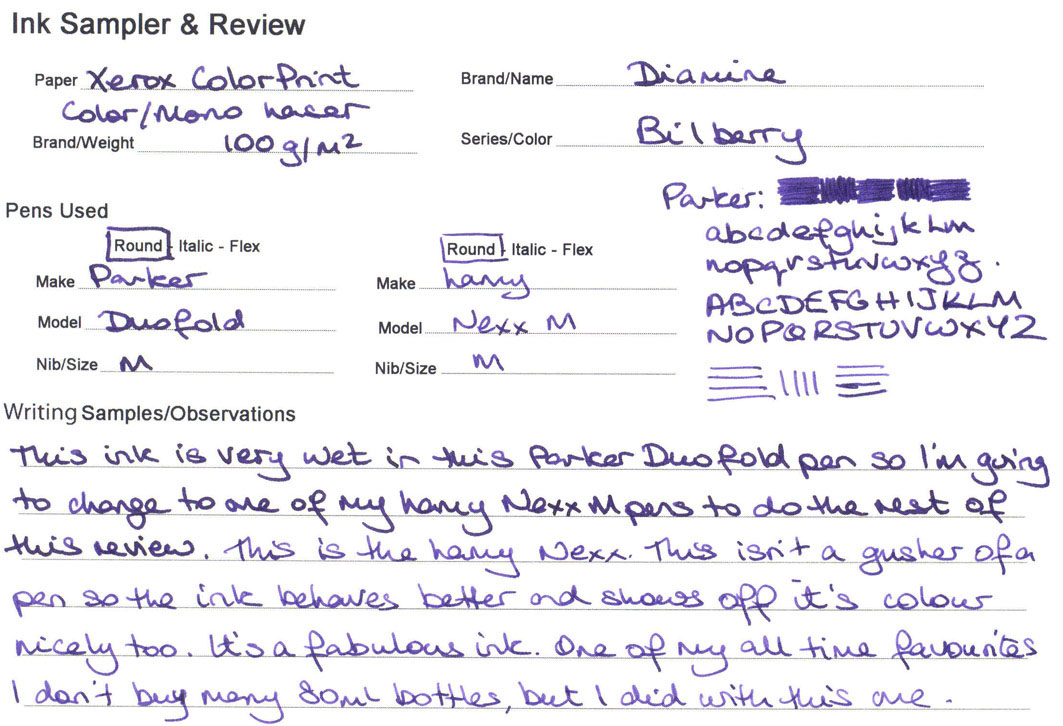 Ink Sampler & Review
Paper Xerox ColorPrint
Color/Mono Laser
Brand/Weight 100g/m²
Brand/Name Diamine
Series/Color Bilberry
Parker:
abcdefghijkLm
nopqrstuvwxyz.
ABCDEFGHIJKLM
NOPQRSTUVWXYZ
Pens Used
Round - Italic - Flex
Make Parker
Model Duofold
Nib/Size M
Round - Italic - Flex
Make Lamy
Model Nexx M
Nib/Size M
Writing Samples/Observations
This ink is very wet in this Parker Duofold pen so I'm going
to change to one of my Lamy Nexx M pens to do the rest of
this review. This is the Lamy Nexx. This isn't a gusher of a
pen so the ink behaves better and shows off it's colour
nicely too. It's a fabulous ink. One of my all time favourites
I don't buy many 80ml bottles, but I did with this one.